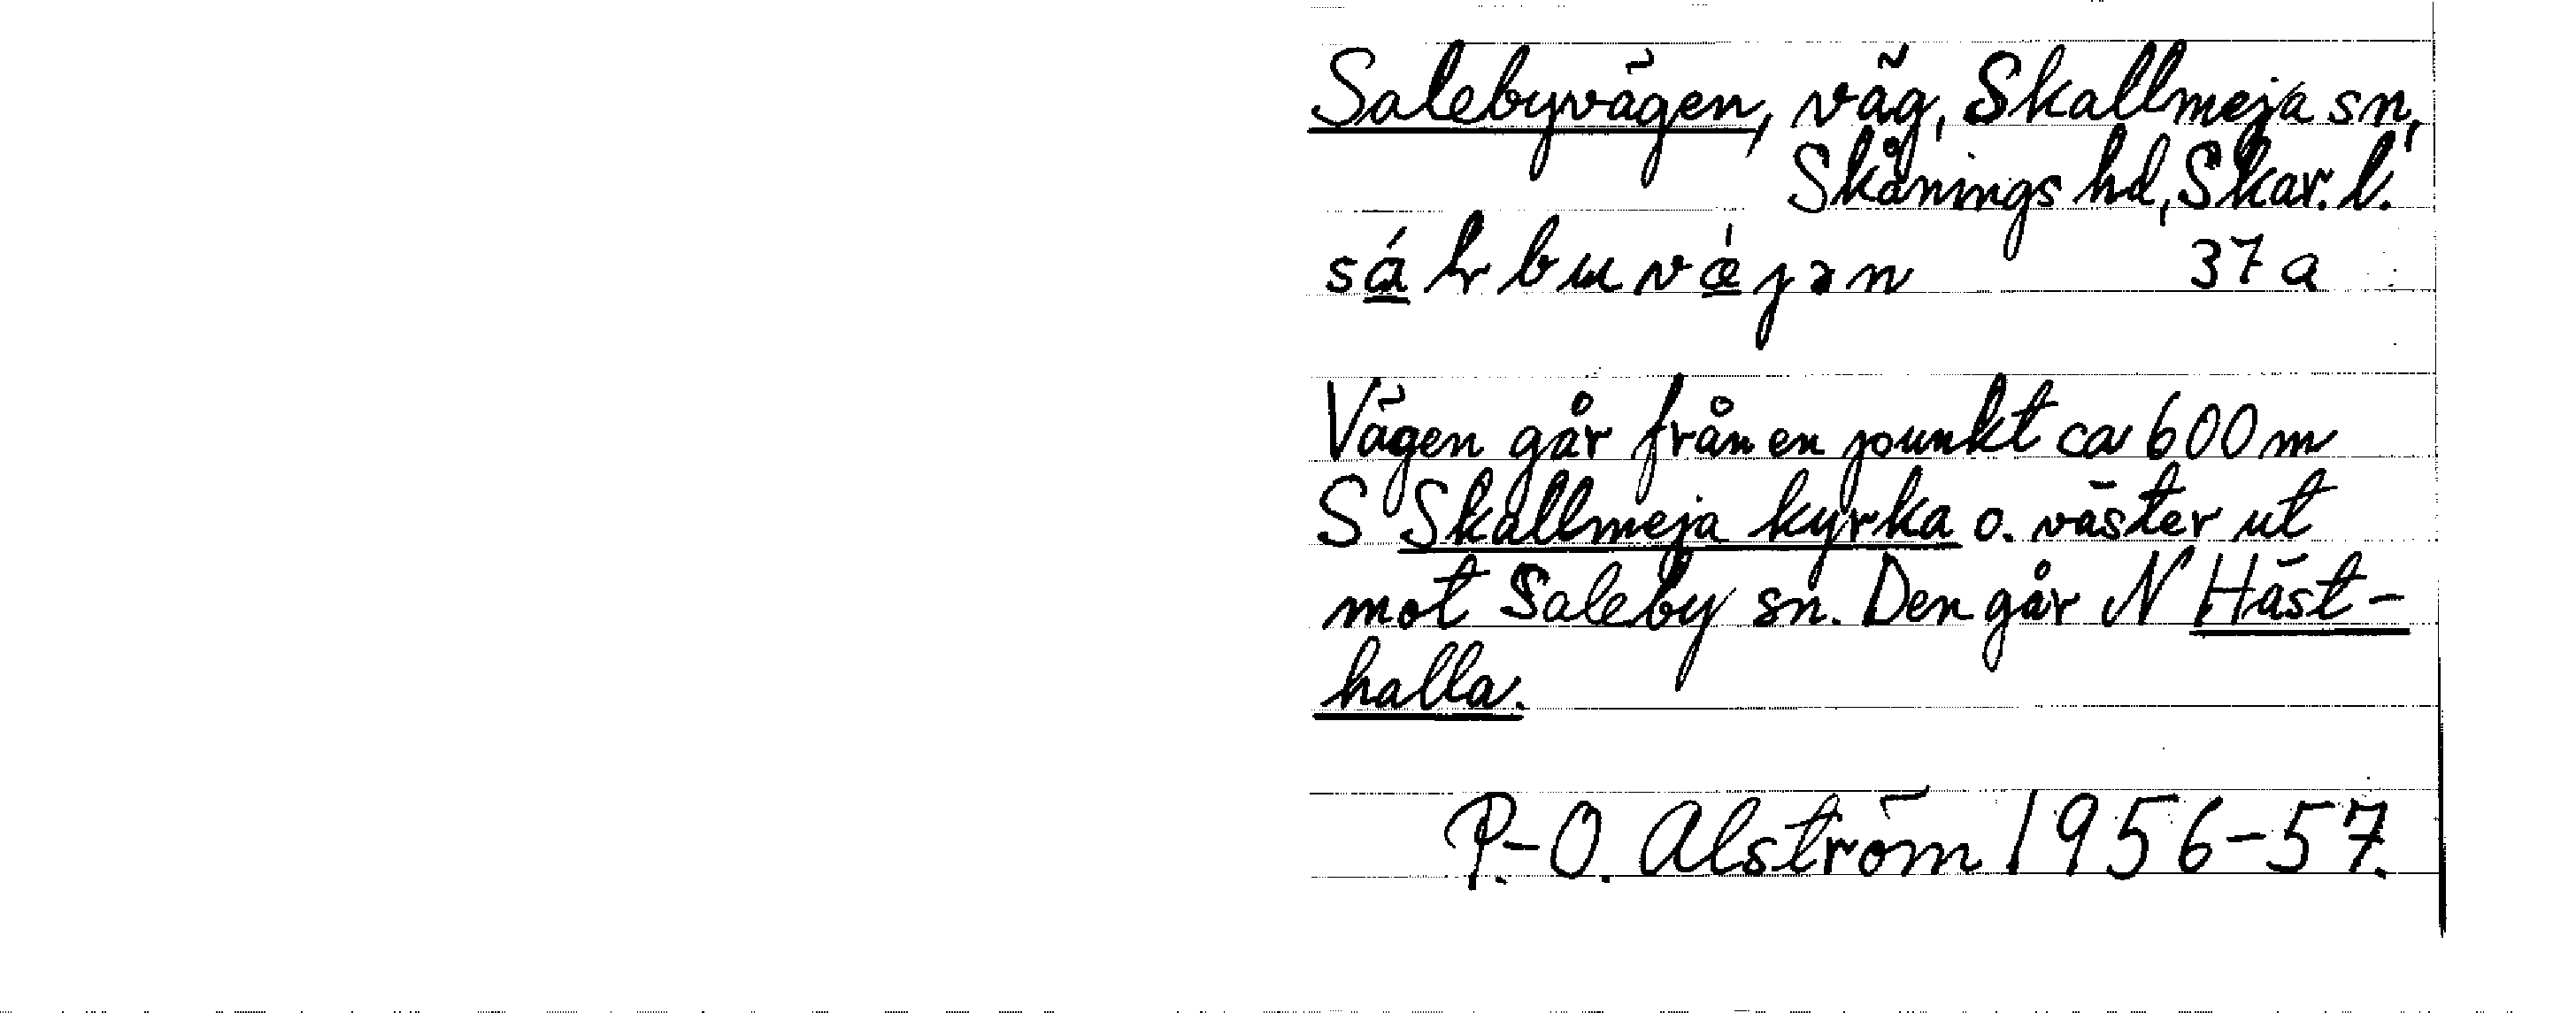 Salebyvägen, väg, Skallmeja sn,
Skånings hd, Skar. l.
37 a
Vägen går från en punkt ca 600 m
S Skallmeja kyrka o. väster ut
mot Saleby sn. Den går N Häst-
halla.
P.-O. Alström 1956-57.